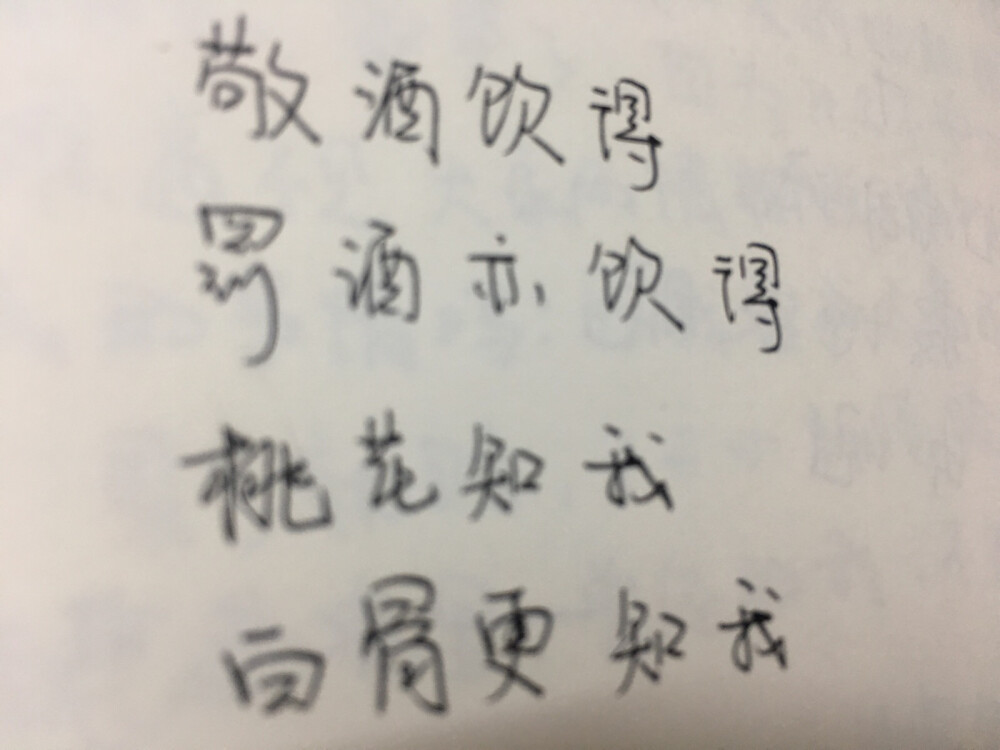 敬酒饮得
罚酒亦饮得
桃花知我
白骨更知我